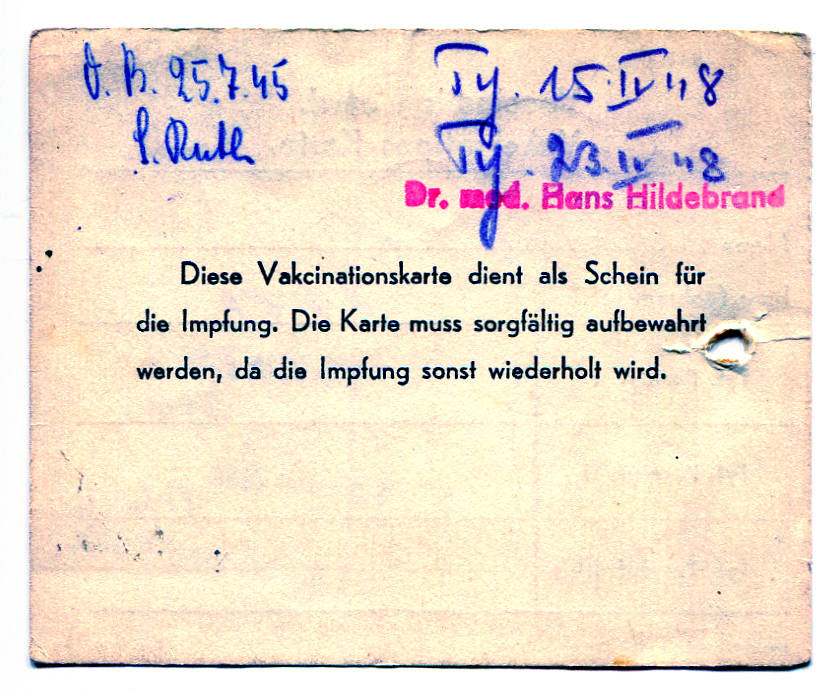 25.7.45
S. Ruth
Ty. 15. IV 48
Ty. 23. IV 48
Dr. med. Hans Hildebrand
Diese Vakcinationskarte dient als Schein für
die Impfung. Die Karte muss sorgfältig aufbewahrt
werden, da die Impfung sonst wiederholt wird.